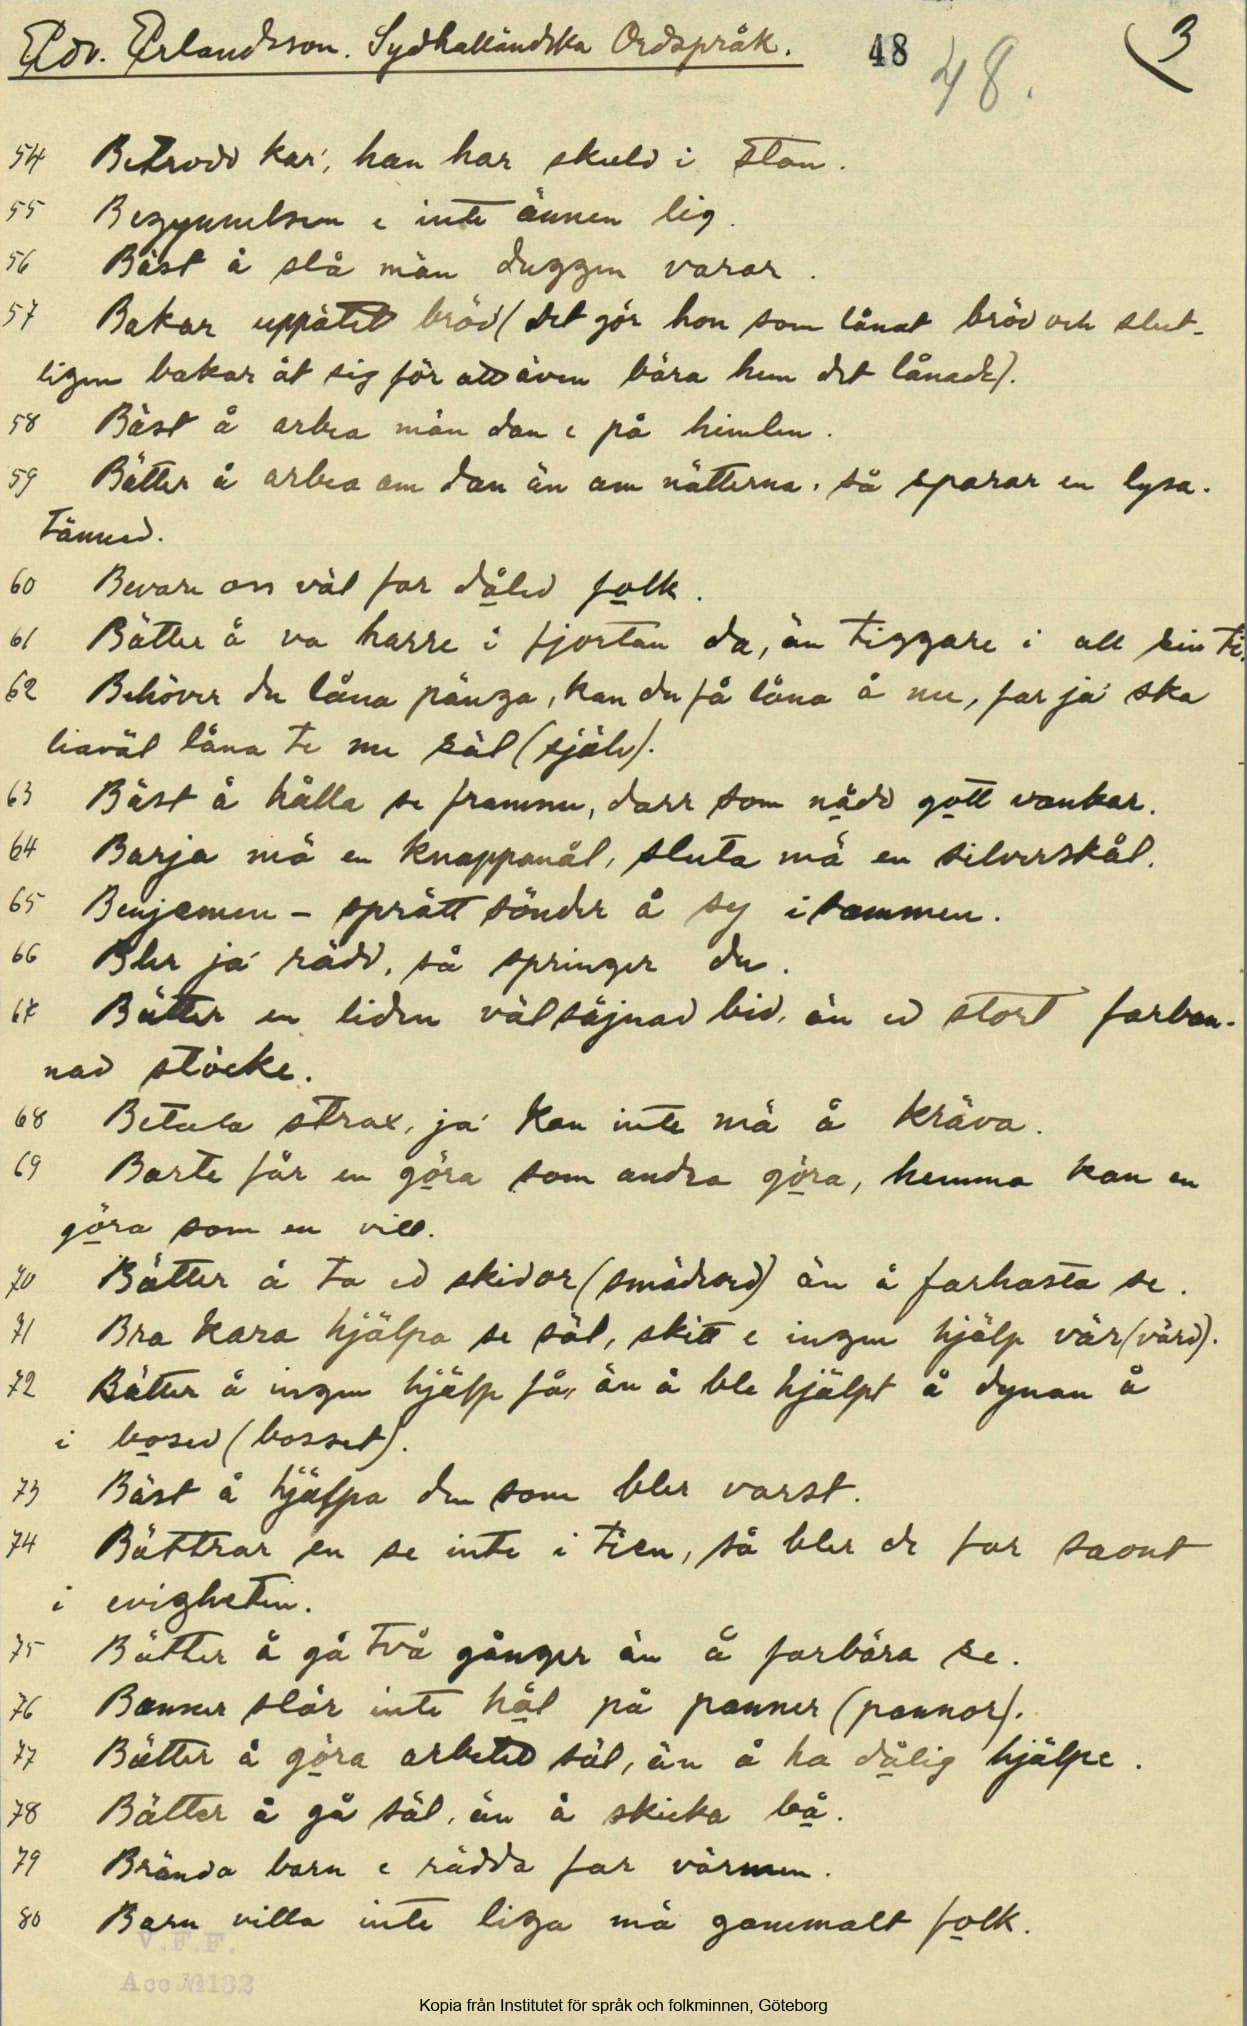 Edv. Erlandsson. Sydhalländska Ordspråk. 48 48. 3
54 Betrodd kar, han har skuld i stan.
55 Begynnelsen e inte ännen lig.
56 Bäst å slå män duggen varar.
57 Bakar uppätet bröd (det gör hon som lånat bröd och slut-
ligen bakar åt sig för att även bära hem det lånade).
58 Bäst å arbea män dan e på himlen.
59 Bätter å arbea om dan än om nätterna, så sparar en lysa-
tänned.
60 Bevare oss väl far dåled folk.
61 Bätter å va harre i fjortan da, än tiggare i all sin ti.
62 Behöver du låna pänga, kan du få låna å me, far ja ska
liaväl låna te me säl (själv).
63 Bäst å hålla se framme, darr som nådd gott vankar.
64 Barja mä en knappanål, sluta mä en silverskål.
65 Benjamen - sprätt sönder å sy isammen.
66 Bler ja rädd, så springer du.
67 Bätter en liden välsäjnad bid, än ed stort farban-
nad stöcke.
68 Betala strax, ja kan inte mä å kräva.
69 Barte får en göra som andra göra, hemma kan en
göra som en vill.
70 Bätter å ta ed skidor (smädord) än å farhasta se.
71 Bra kara hjälpa se säl, skitt e ingen hjälp vär (värd).
72 Bätter å ingen hjälp få, än å ble hjälpt å dynan å
i bosed (bosset).
73 Bäst å hjälpa den som bler varst.
74 Bättrar en se inte i tien, så bler de far saont
i evigheten.
75 Bätter å gå två gånger än å farbära se.
76 Banner slår inte hål på panner (pannor).
77 Bätter å göra arbeted säl, än å ha dålig hjälpe.
78 Bätter å gå säl, än å skicka bå.
79 Brända barn e rädda far värmen.
80 Barn villa inte liga mä gammalt folk.
V.F.F.
Acc № 132
Kopia från Institutet för språk och folkminnen, Göteborg